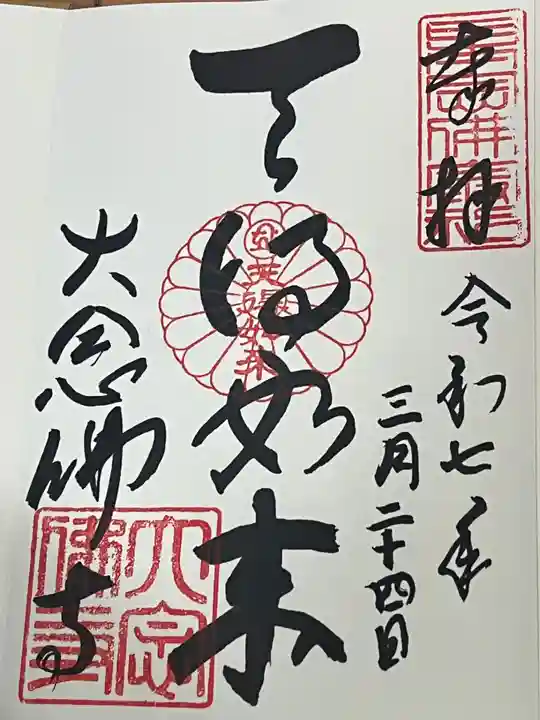 奉拝
令和七年
三月二十四日
天得如来
大念佛寺
大念
佛寺